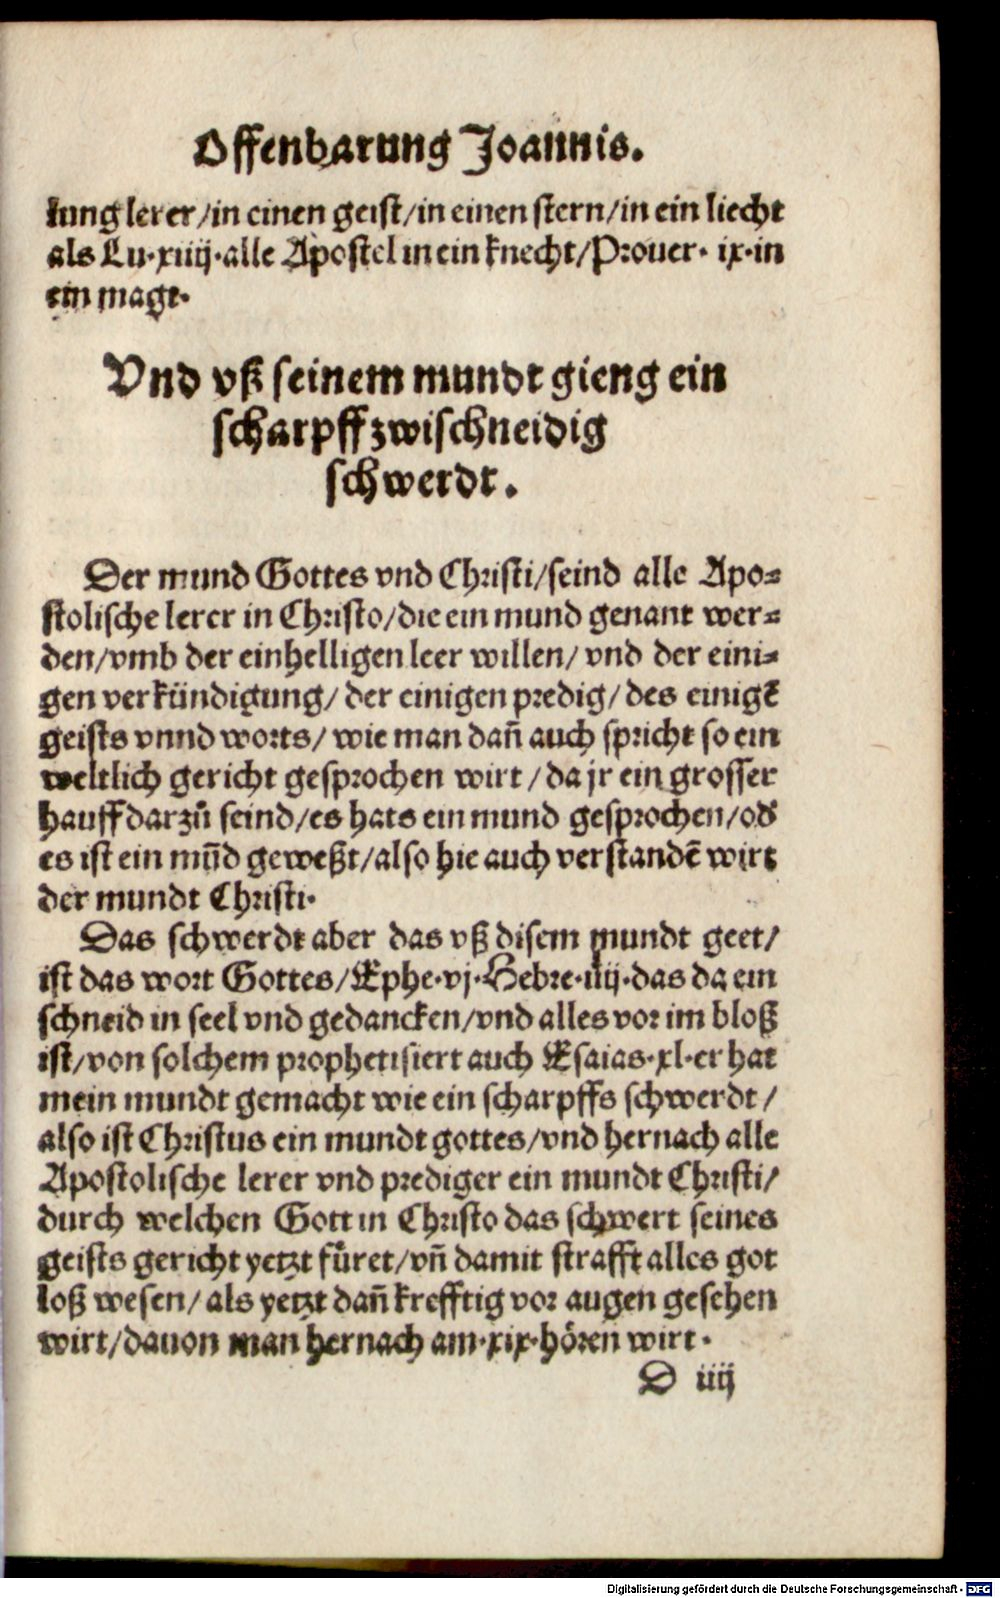 Offenbarung Joannis.
kung lerer/in einen geist/in einen stern/in ein liecht
als Lu·xiiij·alle Apostel in ein knecht/Prouer· ix·in
ein magt·
Vnd vß seinem mundt gieng ein
scharpff zwischneidig
schwerdt.
Der mund Gottes vnd Christi/seind alle Apo⸗
stolische lerer in Christo/die ein mund genant wer⸗
den/vmb der einhelligen leer willen/ vnd der eini⸗
gen verkündigung/ der einigen predig/ des einigẽ
geists vnnd worts/ wie man dañ auch spricht so ein
weltlich gericht gesprochen wirt /da jr ein grosser
hauff darzů seind/es hats ein mund gesprochen/oď
es ist ein mũd geweßt/also hie auch verstandẽ wirt
der mundt Christi·
Das schwerdt aber das vß disem mundt geet/
ist das wort Gottes/Ephe·vj·Hebre·iiij·das da ein
schneid in seel vnd gedancken/vnd alles vor im bloß
ist/von solchem prophetisiert auch Esaias·xl·er hat
mein mundt gemacht wie ein scharpffs schwerdt /
also ist Christus ein mundt gottes/vnd hernach alle
Apostolische lerer vnd prediger ein mundt Christi/
durch welchen Gott in Christo das schwert seines
geists gericht yetzt fůret/vñ damit strafft alles got
loß wesen/ als yetzt dañ krefftig vor augen gesehen
wirt/dauon man hernach am·xix·hören wirt·
D iiij
Digitalisierung gefördert durch die Deutsche Forschungsgemeinschaft - DFG